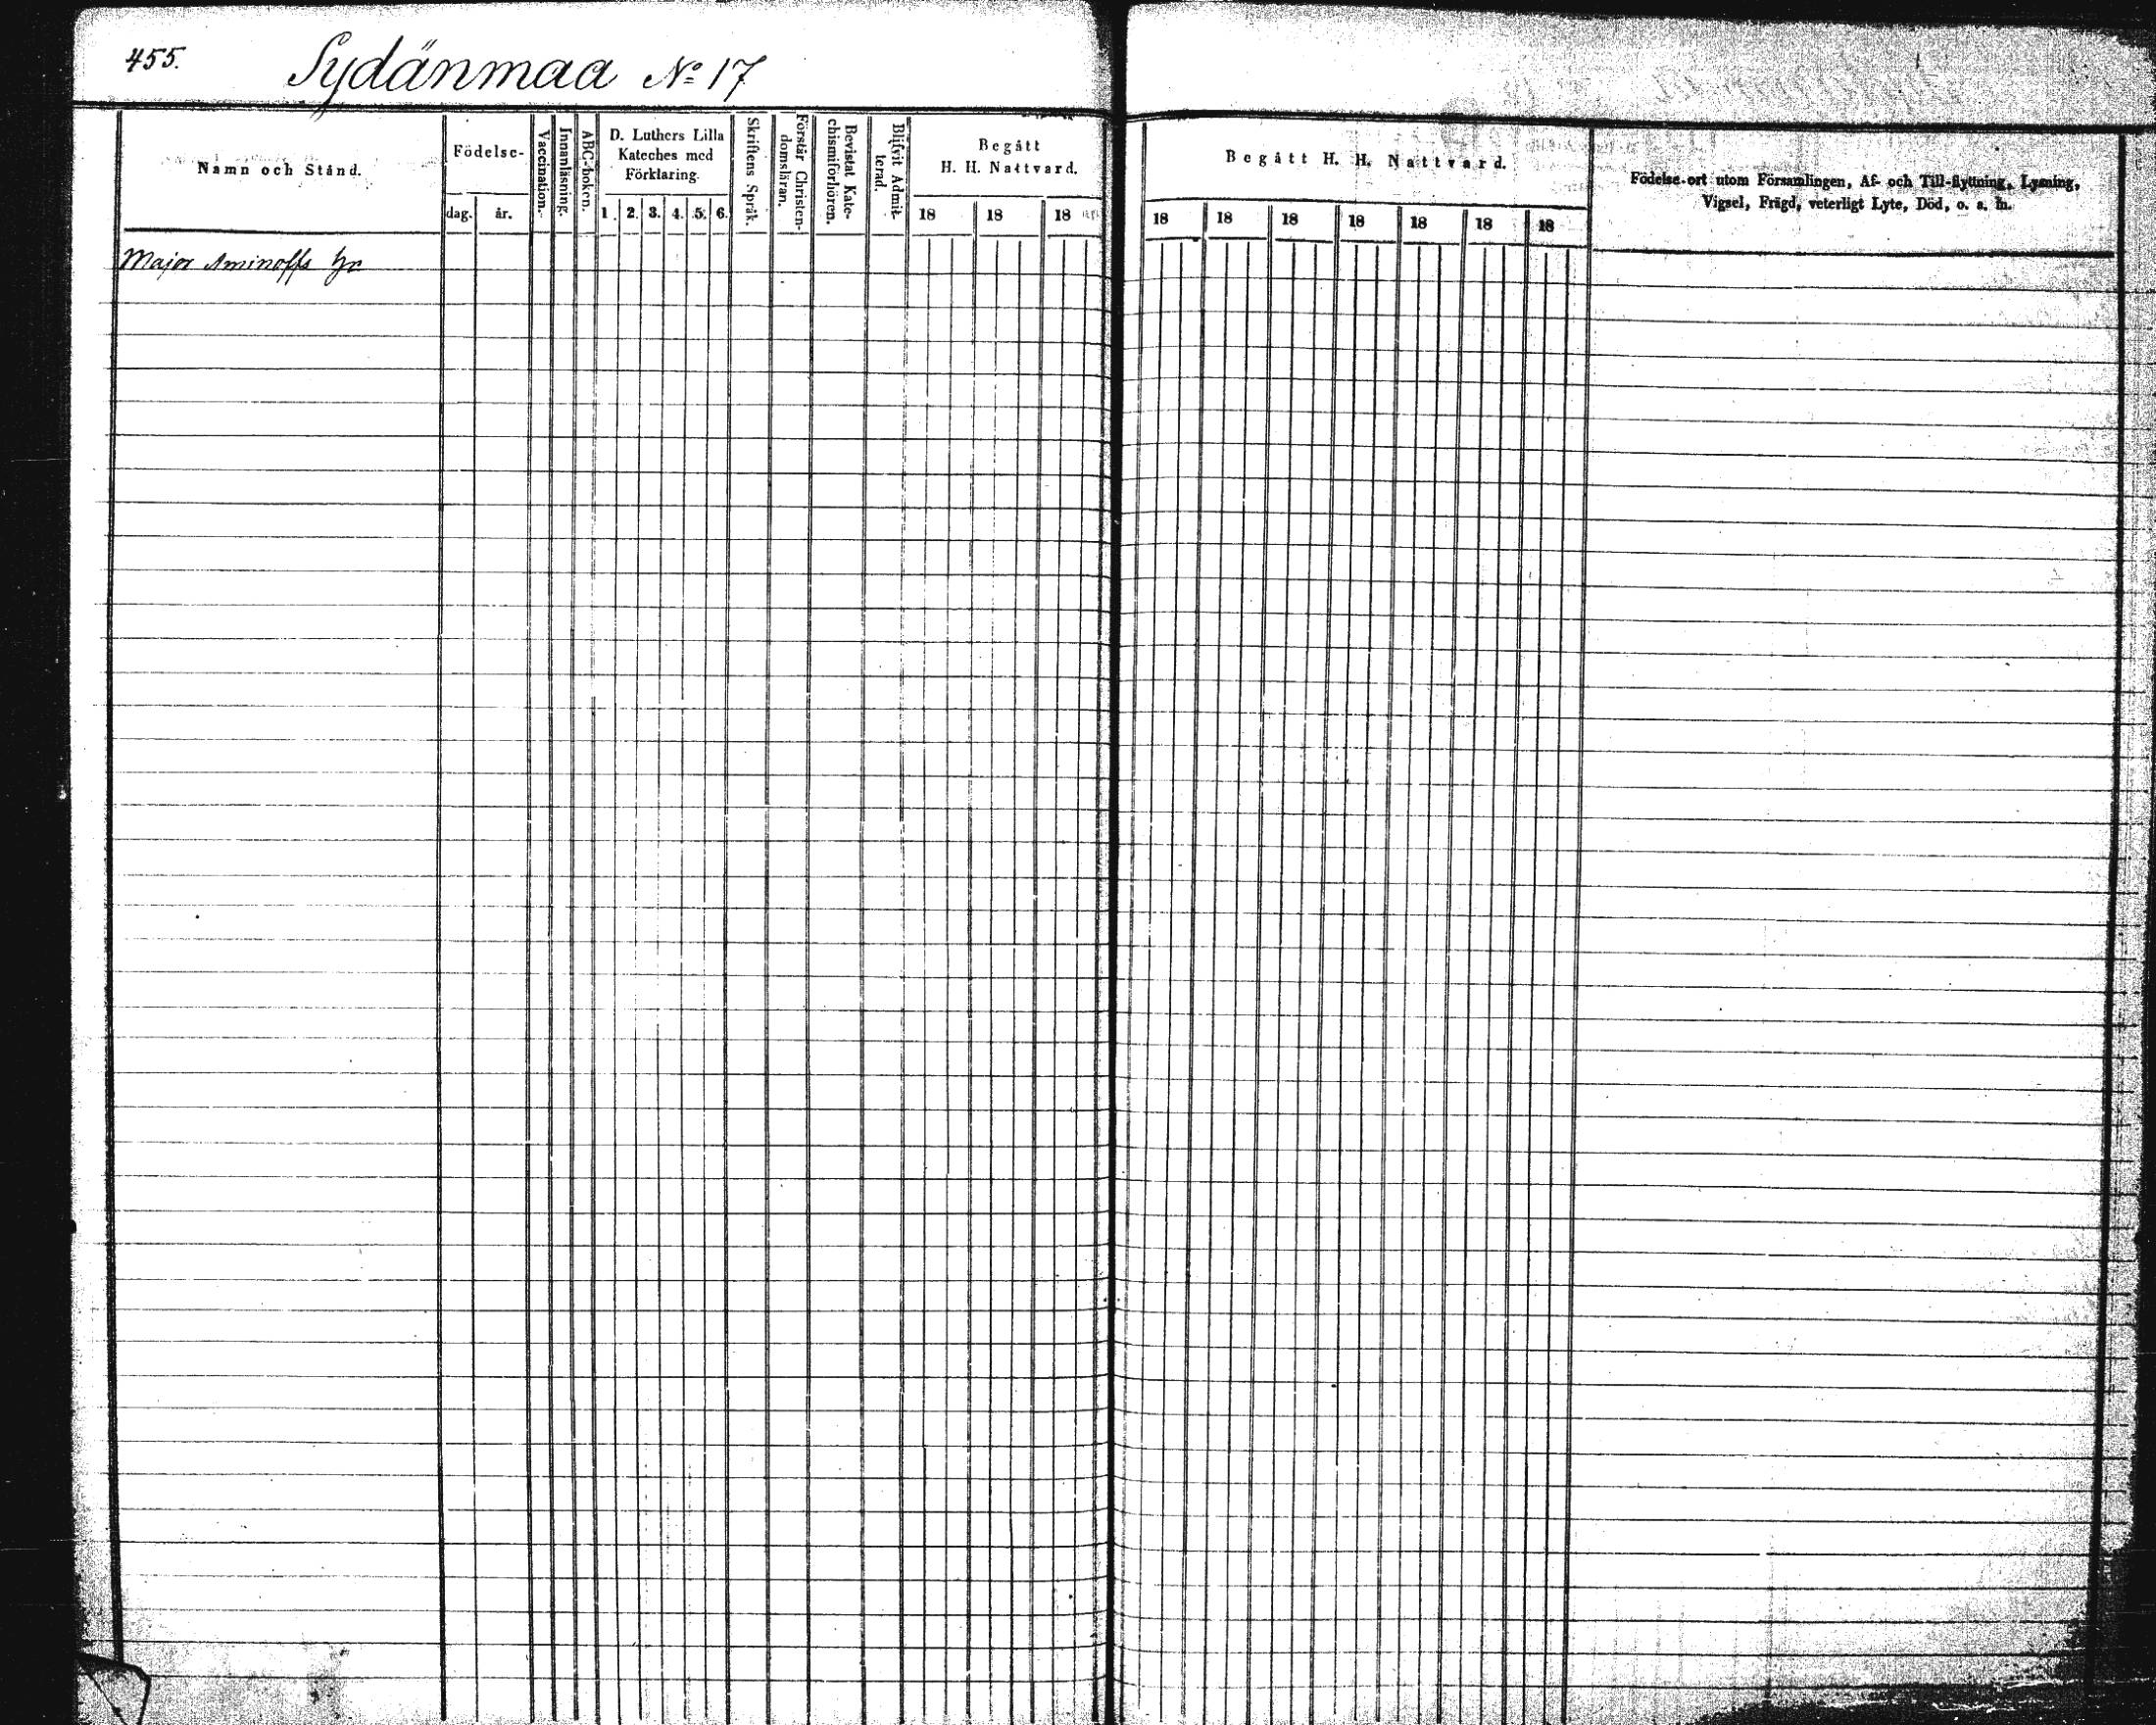 455.
Sydänmaa No 17
Namn och Stånd.
Födelse-
dag.
år.
Vaccination.
Innanläsning.
ABC-boken.
D. Luthers Lilla
Kateches med
Förklaring.
1. 2. 3. 4. 5. 6.
Skriftens Språk.
Förstår Christen-
domsläran.
Bevistat Kate-
chismiförhören.
Blifvit Admit-
terad.
Begått
H. H. Nattvard.
18 18 18
Begått H. H. Nattvard.
18 18 18 18 18 18 18
Födelse-ort utom Församlingen, Af- och Till-flyttning, Lysning,
Vigsel, Frägd, veterligt Lyte, Död, o. s. m.
Major Aminoffs